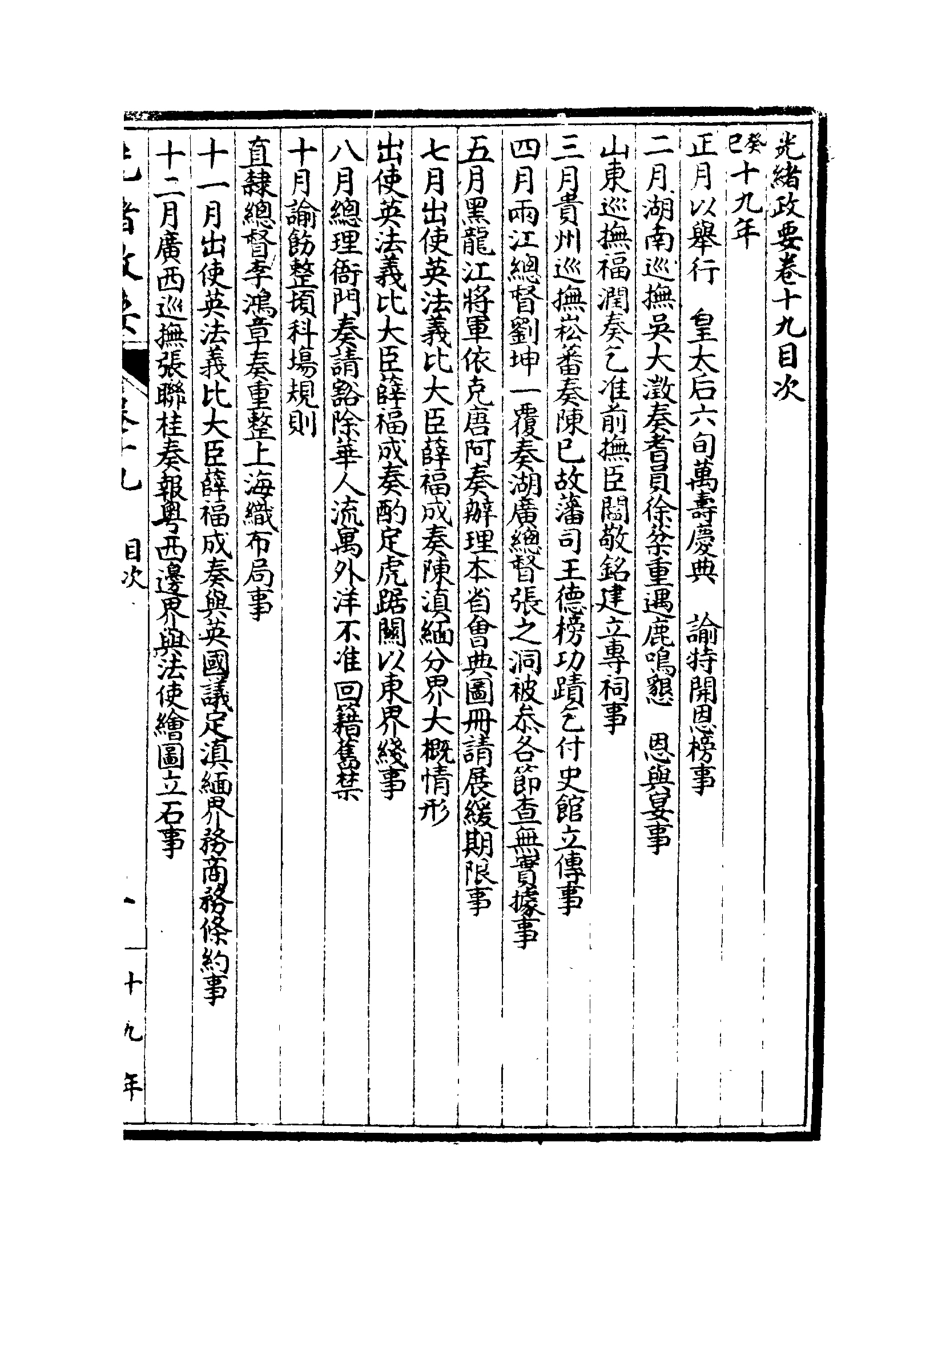 光緒政要卷十九目次
癸巳十九年
正月以舉行 皇太后六旬萬壽慶典 諭特開恩榜事
二月湖南巡撫吳大澂奏耆員徐棻重遇鹿鳴懇 恩與宴事
山東巡撫福潤奏乞准前撫臣閻敬銘建立專祠事
三月貴州巡撫崧蕃奏陳已故藩司王德榜功蹟乞付史館立傳事
四月兩江總督劉坤一覆奏湖廣總督張之洞被叅各節查無實據事
五月黑龍江將軍依克唐阿奏辦理本省會典圖冊請展緩期限事
七月出使英法義比大臣薛福成奏陳滇緬分界大概情形
出使英法義比大臣薛福成奏酌定虎踞關以東界綫事
八月總理衙門奏請豁除華人流寓外洋不准回籍舊禁
十月諭飭整頓科塲規則
直隸總督李鴻章奏重整上海織布局事
十一月出使英法義比大臣薛福成奏與英國議定滇緬界務商務條約事
十二月廣西巡撫張聯桂奏報粵西邊界與法使繪圖立石事
光緒政要 卷十九 目次 一 十九年